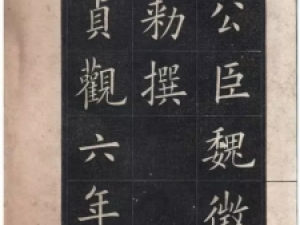 公臣魏徵
勑撰
貞觀六年